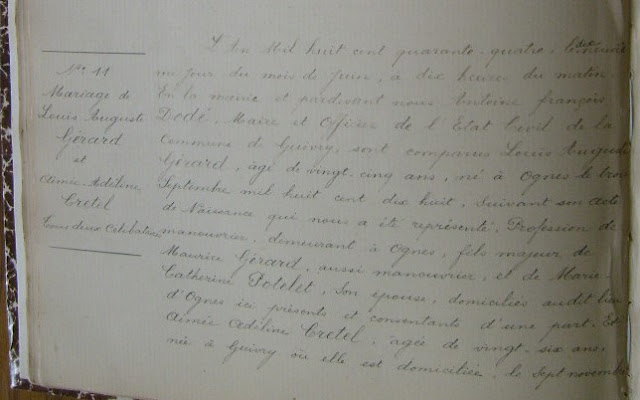 N° 11
Mariage de
Louis Auguste
Gérard
et
Aimée Adéline
Cretel
tous deux Célibataires
L'An Mil huit cent quarante-quatre, le dix neuviè
me jour du mois de Juin, à dix heures du matin
En la mairie et pardevant nous Antoine françois
Dodé, Maire et Officier de l'Etat Civil de la
Commune de Guivry, sont comparus Louis Auguste
Gérard, agé de vingt-cinq ans, né à Ognes le trois
Septembre mil huit cent dix huit, Suivant son acte
de Naissance qui nous a été représenté, Profession de
manouvrier, demeurant à Ognes, fils majeur de
Maurice Gérard, aussi manouvrier, et de Marie-
Catherine Potelet, Son épouse, domiciliés audit lieu
d'Ognes ici présents et consentants d'une part. Et
Aimée Adéline Cretel, agée de vingt-six ans,
née à Guivry où elle est domiciliée, le Sept novembre